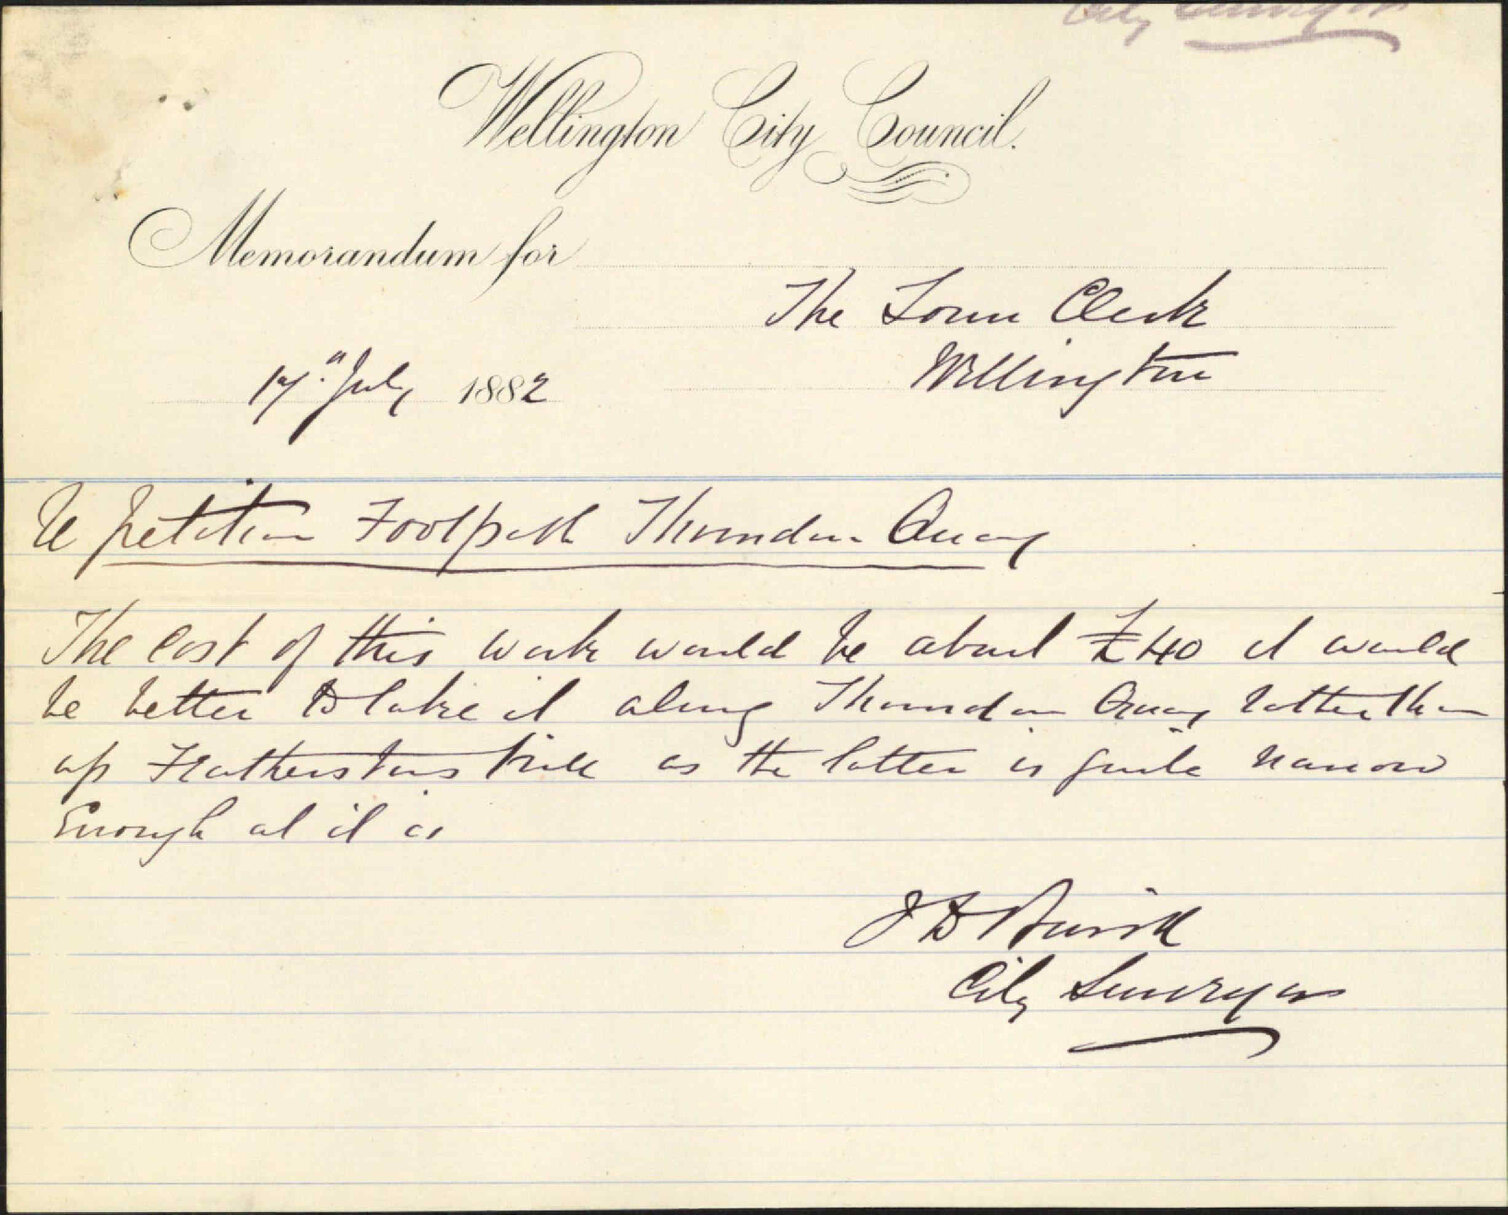 City Surveyor
Wellington City Council.
Memorandum for
The Town Clerk
Wellington
17th July 1882
Re petition Footpath Thorndon Quay
The cost of this work would be about £40 it would
be better to take it along Thorndon Quay rather than
up Featherston Street as the latter is quite narrow
Enough as it is
J D Baird
City Surveyor